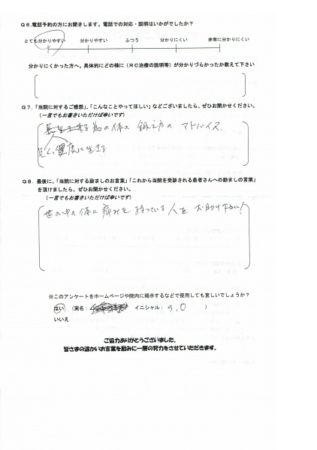 Q6.電話予約の方にお聞きします。電話での対応・説明はいかがでしたか?
とても分かりやすい 分かりやすい ふつう 分かりにくい 非常に分かりにくい
分かりにくかった方へ。具体的にどの様に(RC治療の説明等)が分かりづらかったか教えて下さい
Q7.「当院に対するご感想」、「こんなことやってほしい」などございましたら、ぜひお聞かせください。
(一言でもお書きいただければ幸いです)
為の体の鍛え方の アドバイス
健康に生きる
Q8.最後に、「当院に対する励ましのお言葉」「これから当院を受診される患者さんへの励ましの言葉」
を頂けましたら、ぜひお聞かせください。
(一言でもお書きいただければ幸いです)
世の中の体に痛みを持っている人を お助け下さい!
※このアンケートをホームページや院内に掲示するなどで使用しても宜しいでしょうか?
はい (実名: イニシャル: O )
いいえ
ご協力ありがとうございました。
皆さまの温かいお言葉を励みに一層の努力をさせていただきます。